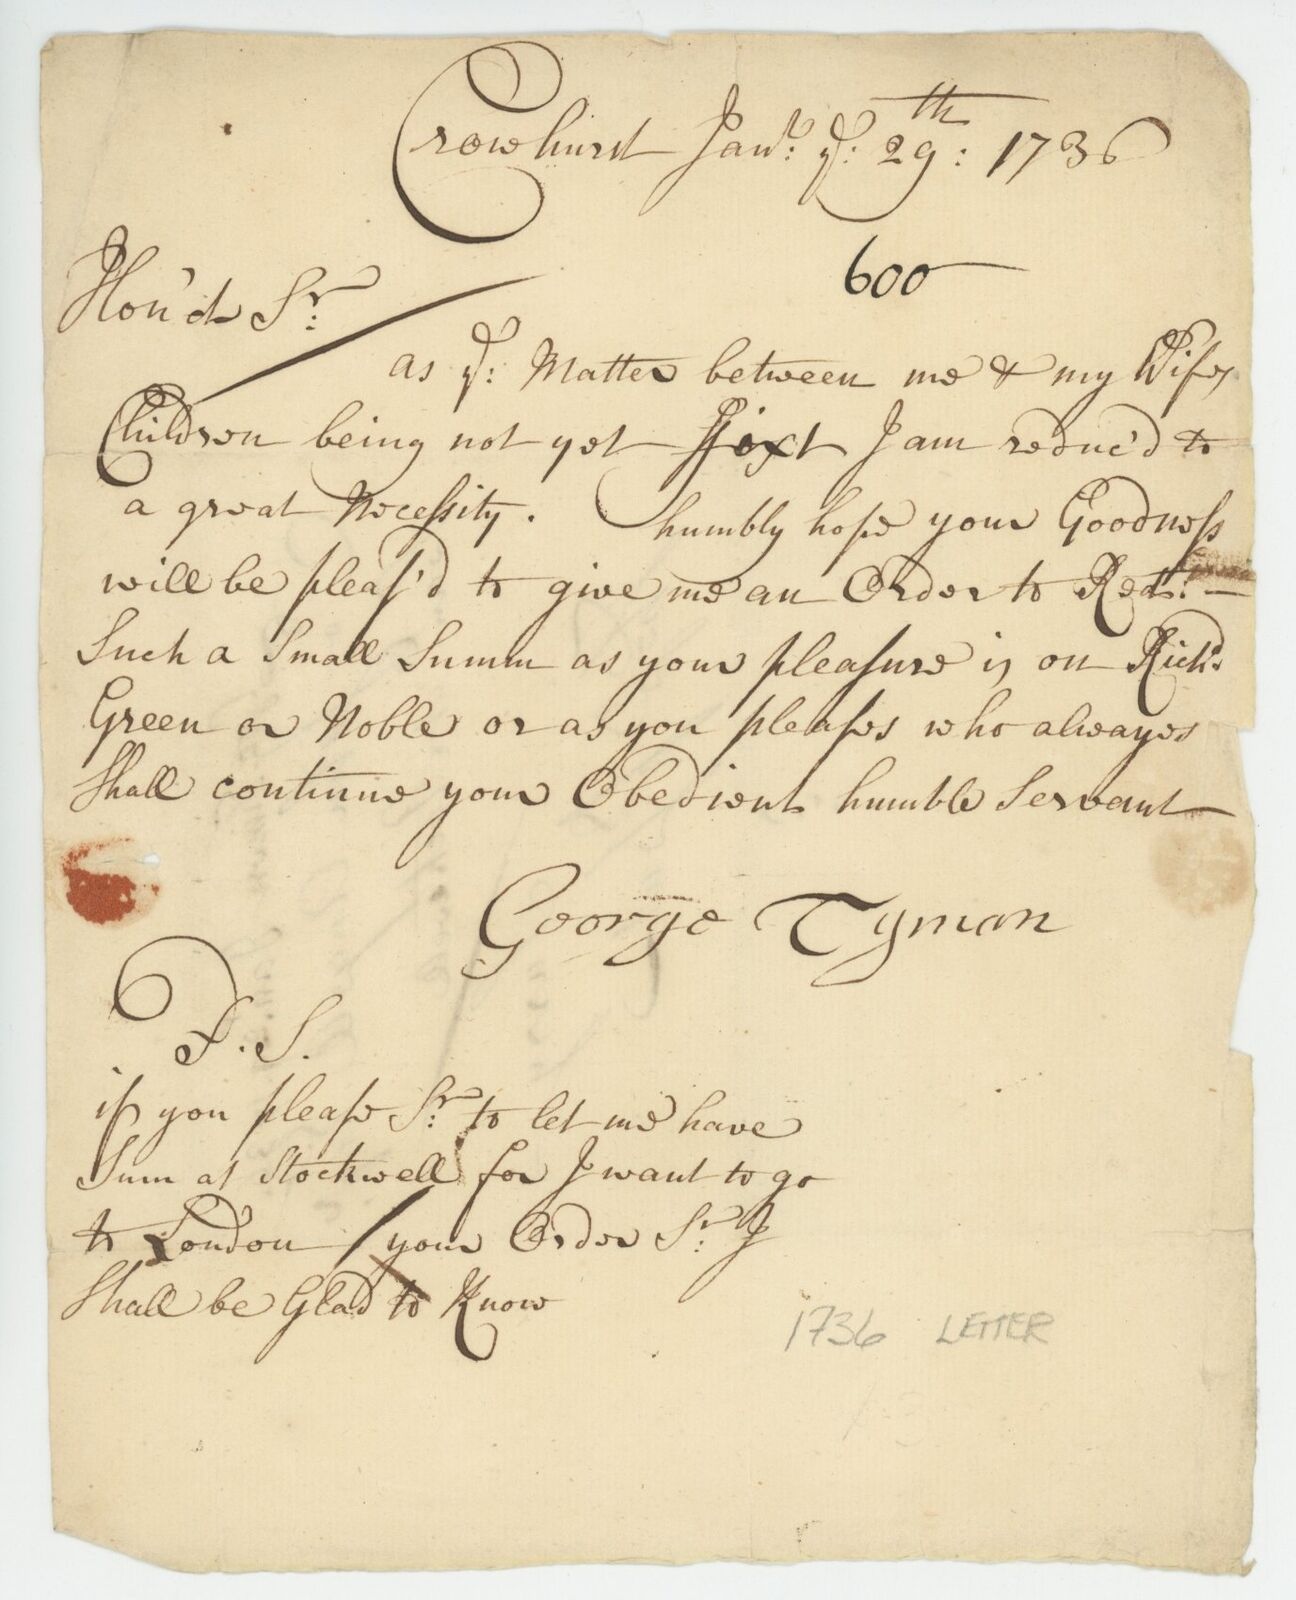 Crowhurst Janr: ye: 29th: 1736
600
Hon'd Sr:
as ye: Matter between me & my Wifes
Children being not yet fixt I am reduc'd to
a great Necessity. humbly hope your Goodness
will be pleas'd to give me an Order to
Such a Small Summ as your pleasure is on Richd
Green or Noble or as you pleases who alwayes
Shall continue your Obedient humble Servant
George Tyman
P.S.
if you please Sr: to let me have
Sum at Stockwell for I want to go
to London / your Order Sr: I
Shall be Glad to Know
1736 LETTER